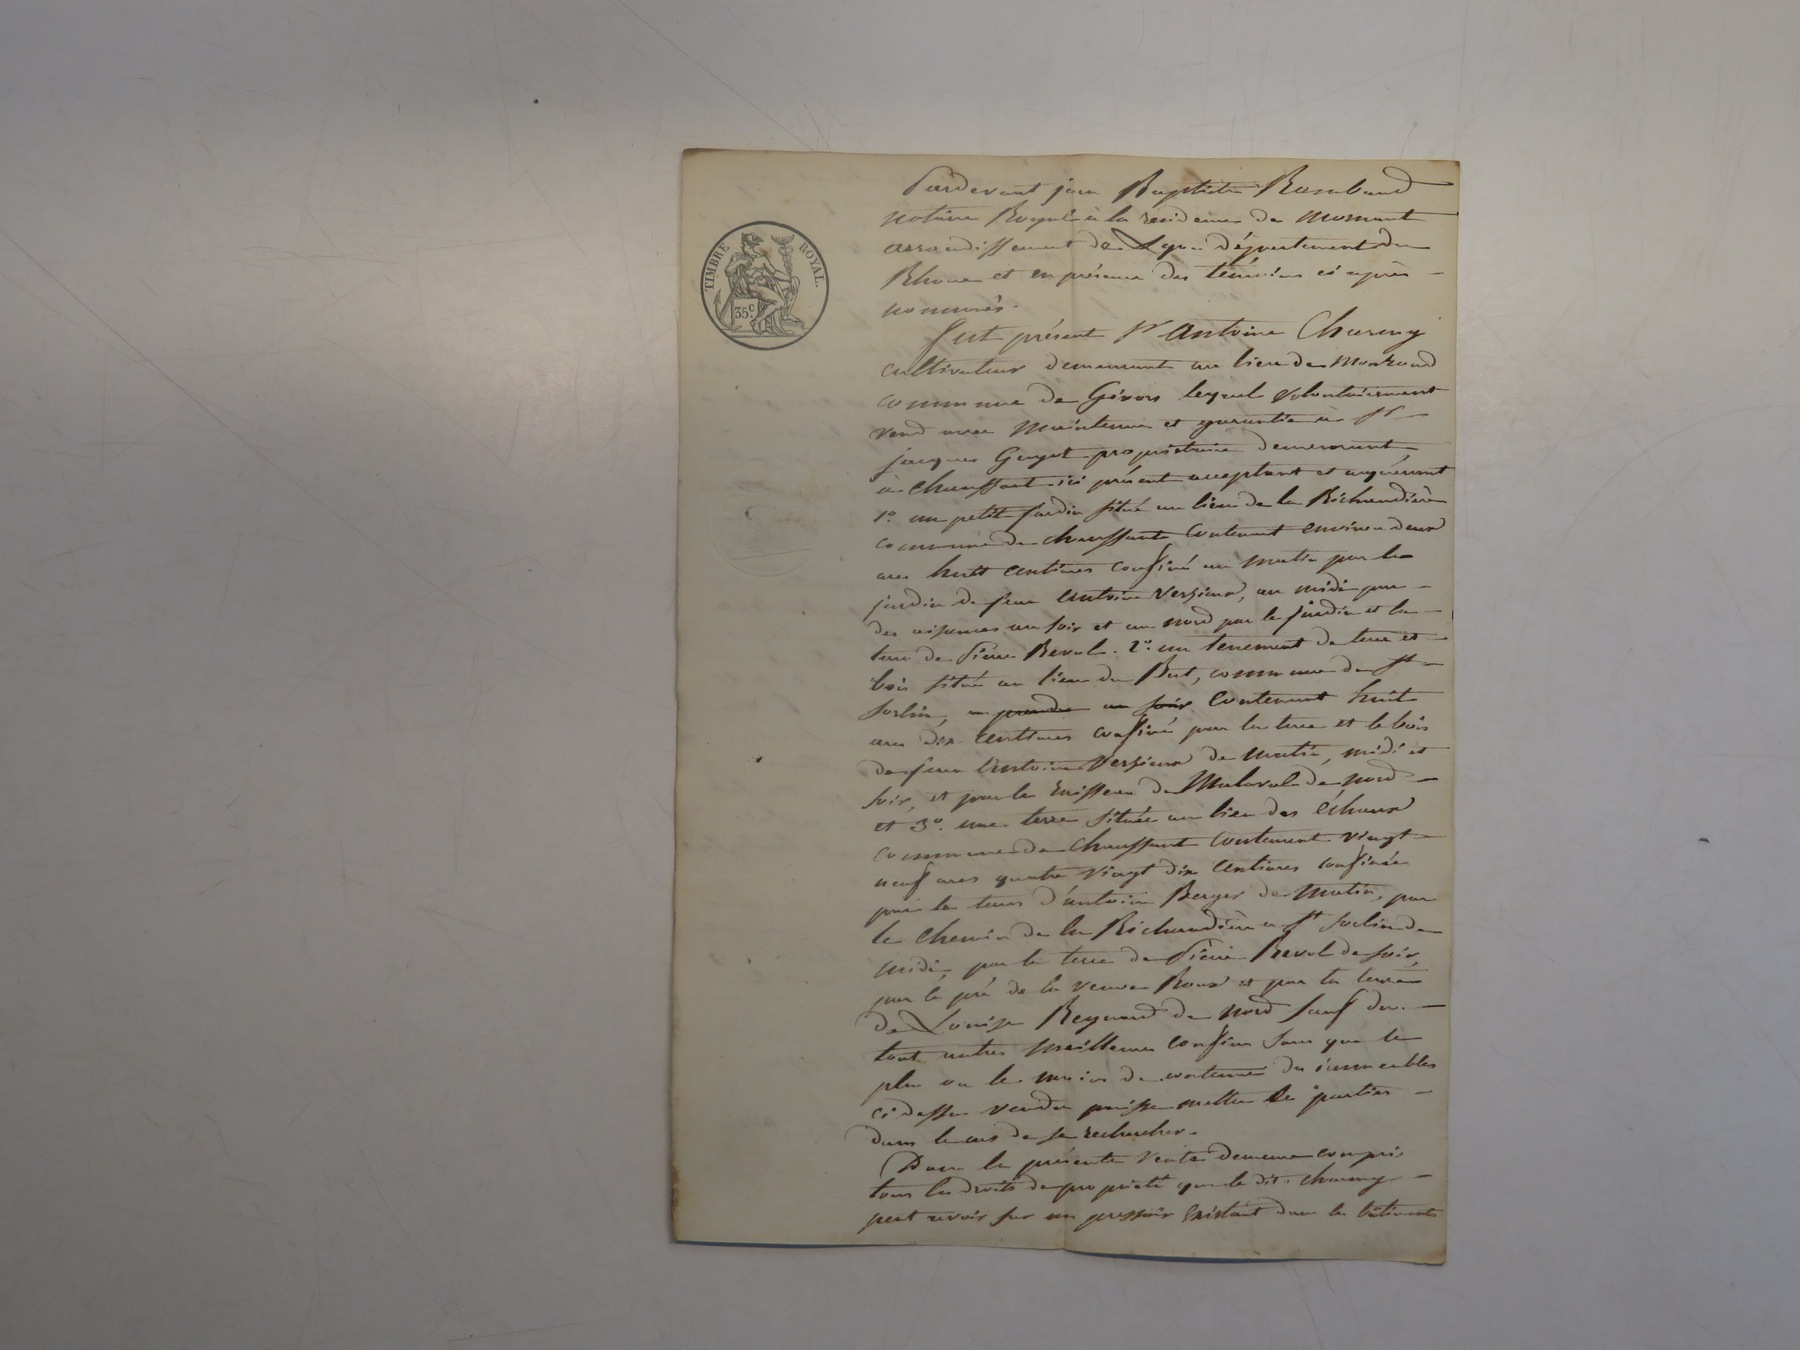 TIMBRE ROYAL.
35c.
Pardevant jean Baptiste Rambaud
notaire Royal à la residence de mornant
arrondissement de Lyon département du
Rhone et en présence des témoins ci après
nommés.
fut présent Sr Antoine Charmy
cultivateur demeurant au lieu de
commune de Givors lequel volontairement
vend avec maintenue et garantie à Sr
jacques Guyot propriétaire demeurant
à chaussant ici présent acceptant et acquerant
1o. un petit jardin situé au lieu de la Richaudière
commune de chaussant contenant environ deux
ares huit centiares confiné au matin par le
jardin de feu Antoine Verzieux, au midi par
des aisances au soir et au nord par le jardin et la
terre de Pierre Revol. 2o. un tenement de terre et
bois situé au lieu du But, commune de St
Sorlin, a prendre au soir contenant huit
ares dix centiares confiné par la terre et le bois
de feu Antoine Verzieux de matin, midi et
soir, et par le ruisseau de Malaval de nord
et 3o. une terre située au lieu des échaux
commune de Chaussant contenant vingt
neuf ares quatre vingt dix centiares confinée
par la terre d'antoine Berger de matin, par
le chemin de la Richaudière à St Sorlin de
midi, par la terre de Pierre Revol de soir,
par le pré de la veuve Roux et par la terre
de Louise Reynard de nord sauf du
tout autres meilleurs confins sans que le
plus ou le moins de contenue des immeubles
ci dessus vendus puisse mettre les parties
dans le cas de se rechercher.
Dans la présente vente demeure compris
tous les droits de propriété que le dit charmy
peut avoir sur un pressoir existant dans les bâtiments